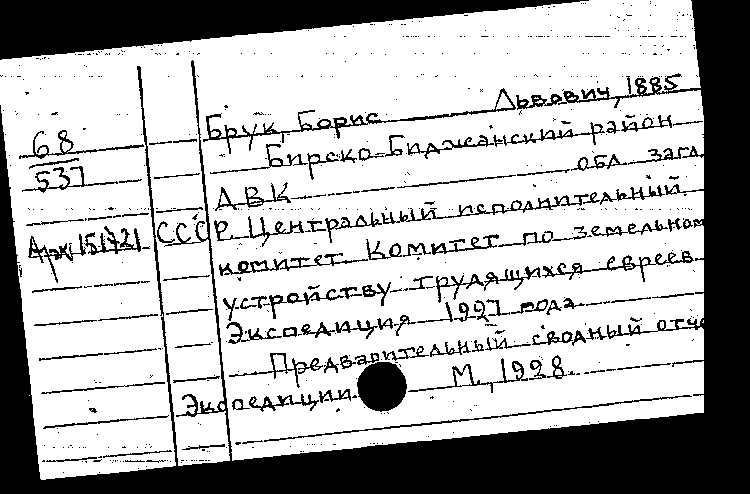 Брук, Борис Львович, 1885
68
Бирско-Биджанский район
537
ДВК обл. загл.
Арх 151421 СССР. Центральный исполнительный
комитет. Комитет по земельном
устройству трудящихся евреев
Экспедиция 1927 года.
Предварительный сводный отче
Экспедиции. М., 1928.